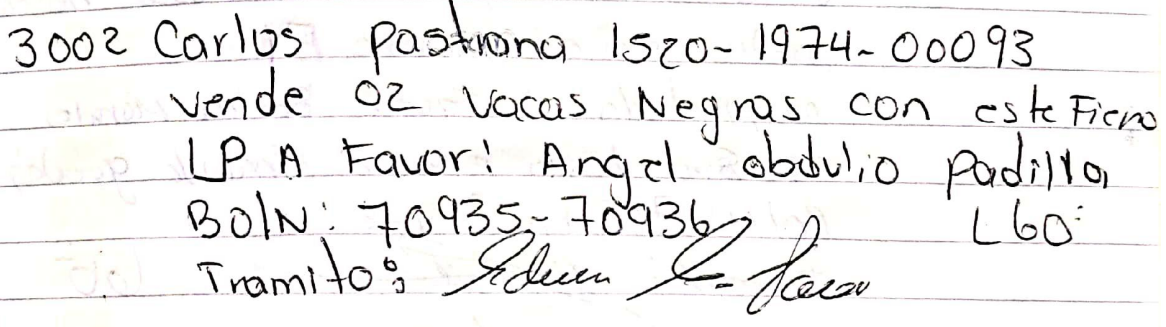 3002 Carlos pastrana 1520-1974-00093
vende 02 vacas Negras con este Fierro
LP A Favor: Angel obdulio padilla
BolN: 70935-70936 L60:
Tramito: